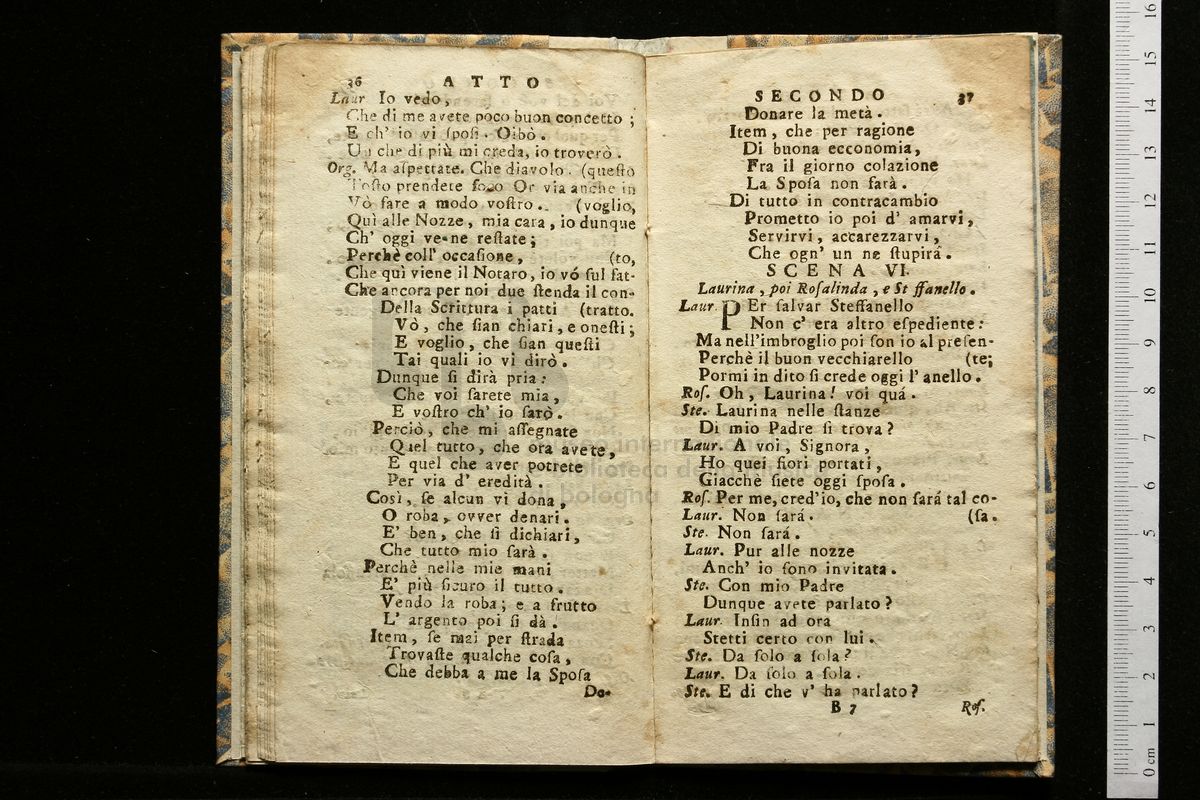 36 ATTO
Laur Io vedo,
Che di me avete poco buon concetto ;
E ch' io vi ſpoſi. Oibò.
Un che di più mi creda, io troverò.
Org. Ma aſpettate. Che diavolo. (queſto
Toſto prendete foco Or via anche in
Vò fare a modo voſtro. (voglio,
Quì alle Nozze, mia cara, io dunque
Ch' oggi ve ne reſtate;
Perchè coll' occaſione, (to,
Che quì viene il Notaro, io vó ſul fat-
Che ancora per noi due ſtenda il con-
Della Scrittura i patti (tratto.
Vò, che ſian chiari, e oneſti;
E voglio, che ſian queſti
Tai quali io vi dirò.
Dunque ſi dirà pria:
Che voi ſarete mia,
E voſtro ch' io ſarò.
Perciò, che mi aſſegnate
Quel tutto, che ora avete,
E quel che aver potrete
Per via d' eredità.
Così, ſe alcun vi dona,
O roba, ovver denari.
E' ben, che ſi dichiari,
Che tutto mio ſarà.
Perchè nelle mie mani
E' più ſicuro il tutto.
Vendo la roba; e a frutto
L' argento poi ſi dà.
Item, ſe mai per ſtrada
Trovaſte qualche coſa,
Che debba a me la Spoſa
Do-
SECONDO 37
Donare la metà.
Item, che per ragione
Di buona ecconomia,
Fra il giorno colazione
La Spoſa non farà.
Di tutto in contracambio
Prometto io poi d' amarvi,
Servirvi, accarezzarvi,
Che ogn' un ne ſtupirá.
SCENA VI.
Laurina, poi Roſalinda, e St ffanello.
Laur. PEr ſalvar Steffanello
Non c' era altro eſpediente:
Ma nell'imbroglio poi ſon io al preſen-
Perchè il buon vecchiarello (te;
Pormi in dito ſi crede oggi l' anello.
Roſ. Oh, Laurina! voi quá.
Ste. Laurina nelle ſtanze
Di mio Padre ſi trova?
Laur. A voi, Signora,
Ho quei fiori portati,
Giacchè ſiete oggi ſpoſa.
Roſ. Per me, cred'io, che non ſará tal co-
Laur. Non ſará. (ſa.
Ste. Non ſará.
Laur. Pur alle nozze
Anch' io ſono invitata.
Ste. Con mio Padre
Dunque avete parlato?
Laur. Inſin ad ora
Stetti certo con lui.
Ste. Da ſolo a ſola?
Laur. Da ſolo a ſola.
Ste. E di che v' ha parlato?
B 7 Roſ.
museo internazionale
e biblioteca della musica
di bologna
0 cm 1 2 3 4 5 6 7 8 9 10 11 12 13 14 15 16